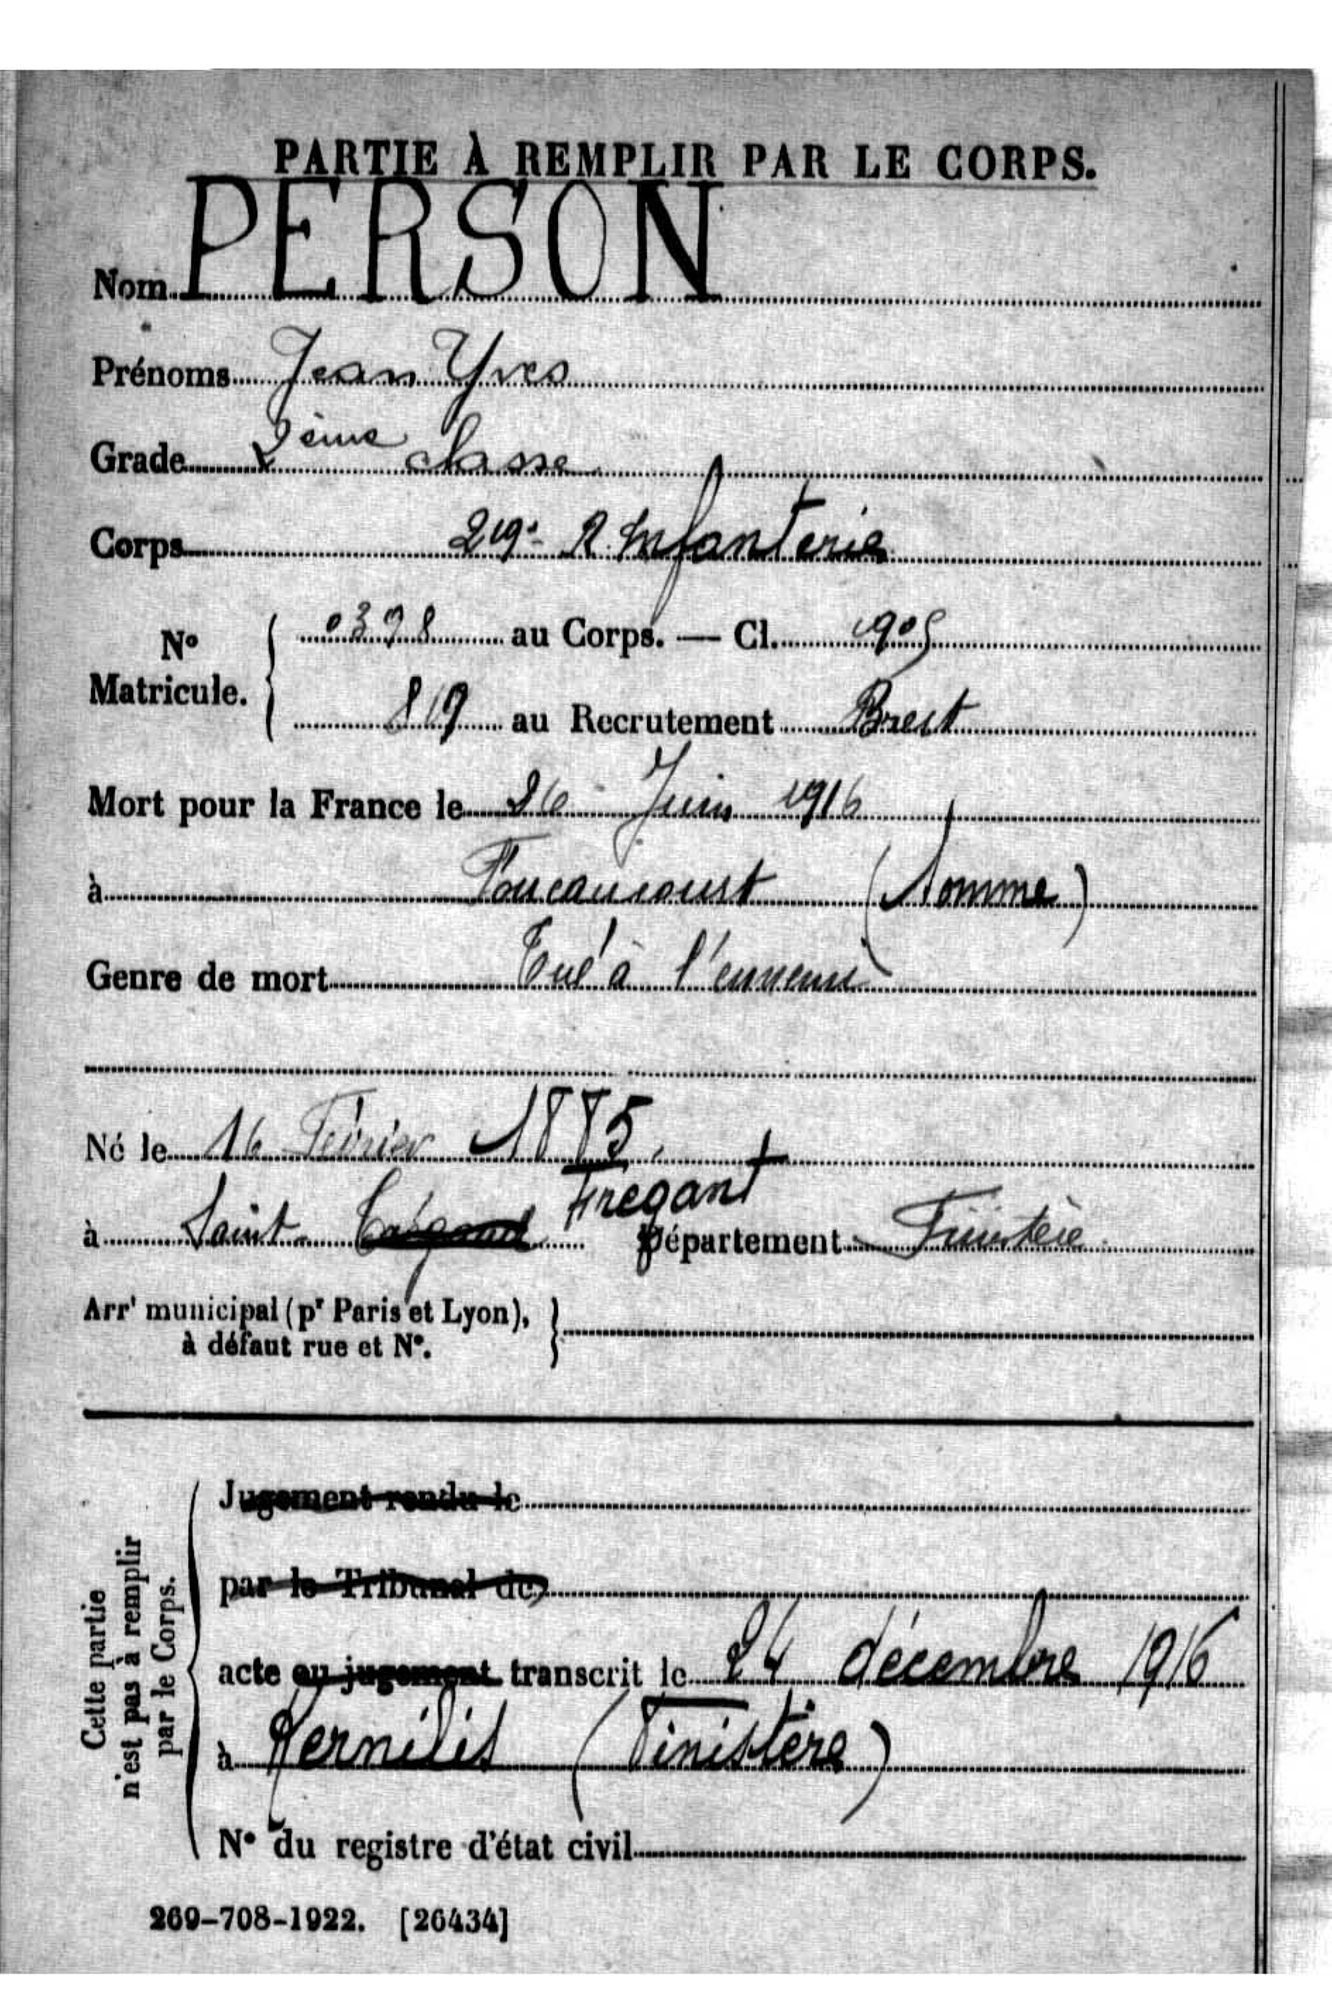 PARTIE À REMPLIR PAR LE CORPS.
Nom PERSON
Prénoms Jean Yves
Grade 2ème classe
Corps 219e R. Infanterie
N° Matricule. { 0398 au Corps. — Cl. 1905
819 au Recrutement Brest
Mort pour la France le 26 Juin 1916
à Foucaucourt (Somme)
Genre de mort Tué à l'ennemi
Né le 16 Février 1885
à Saint Frégant Département Finistère
Arrt municipal (pr Paris et Lyon),
à défaut rue et N°.
Cette partie
n'est pas à remplir
par le Corps.
Jugement rendu le
par le Tribunal de
acte ou jugement transcrit le 24 décembre 1916
à Kernilis (Finistère)
N° du registre d'état civil
269-708-1922. [26434]